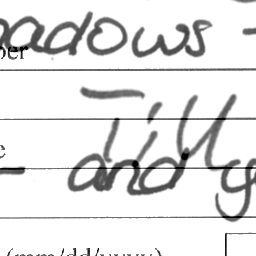 adows -
ber
Till
e
- and y
(mm/dd/yyyy)